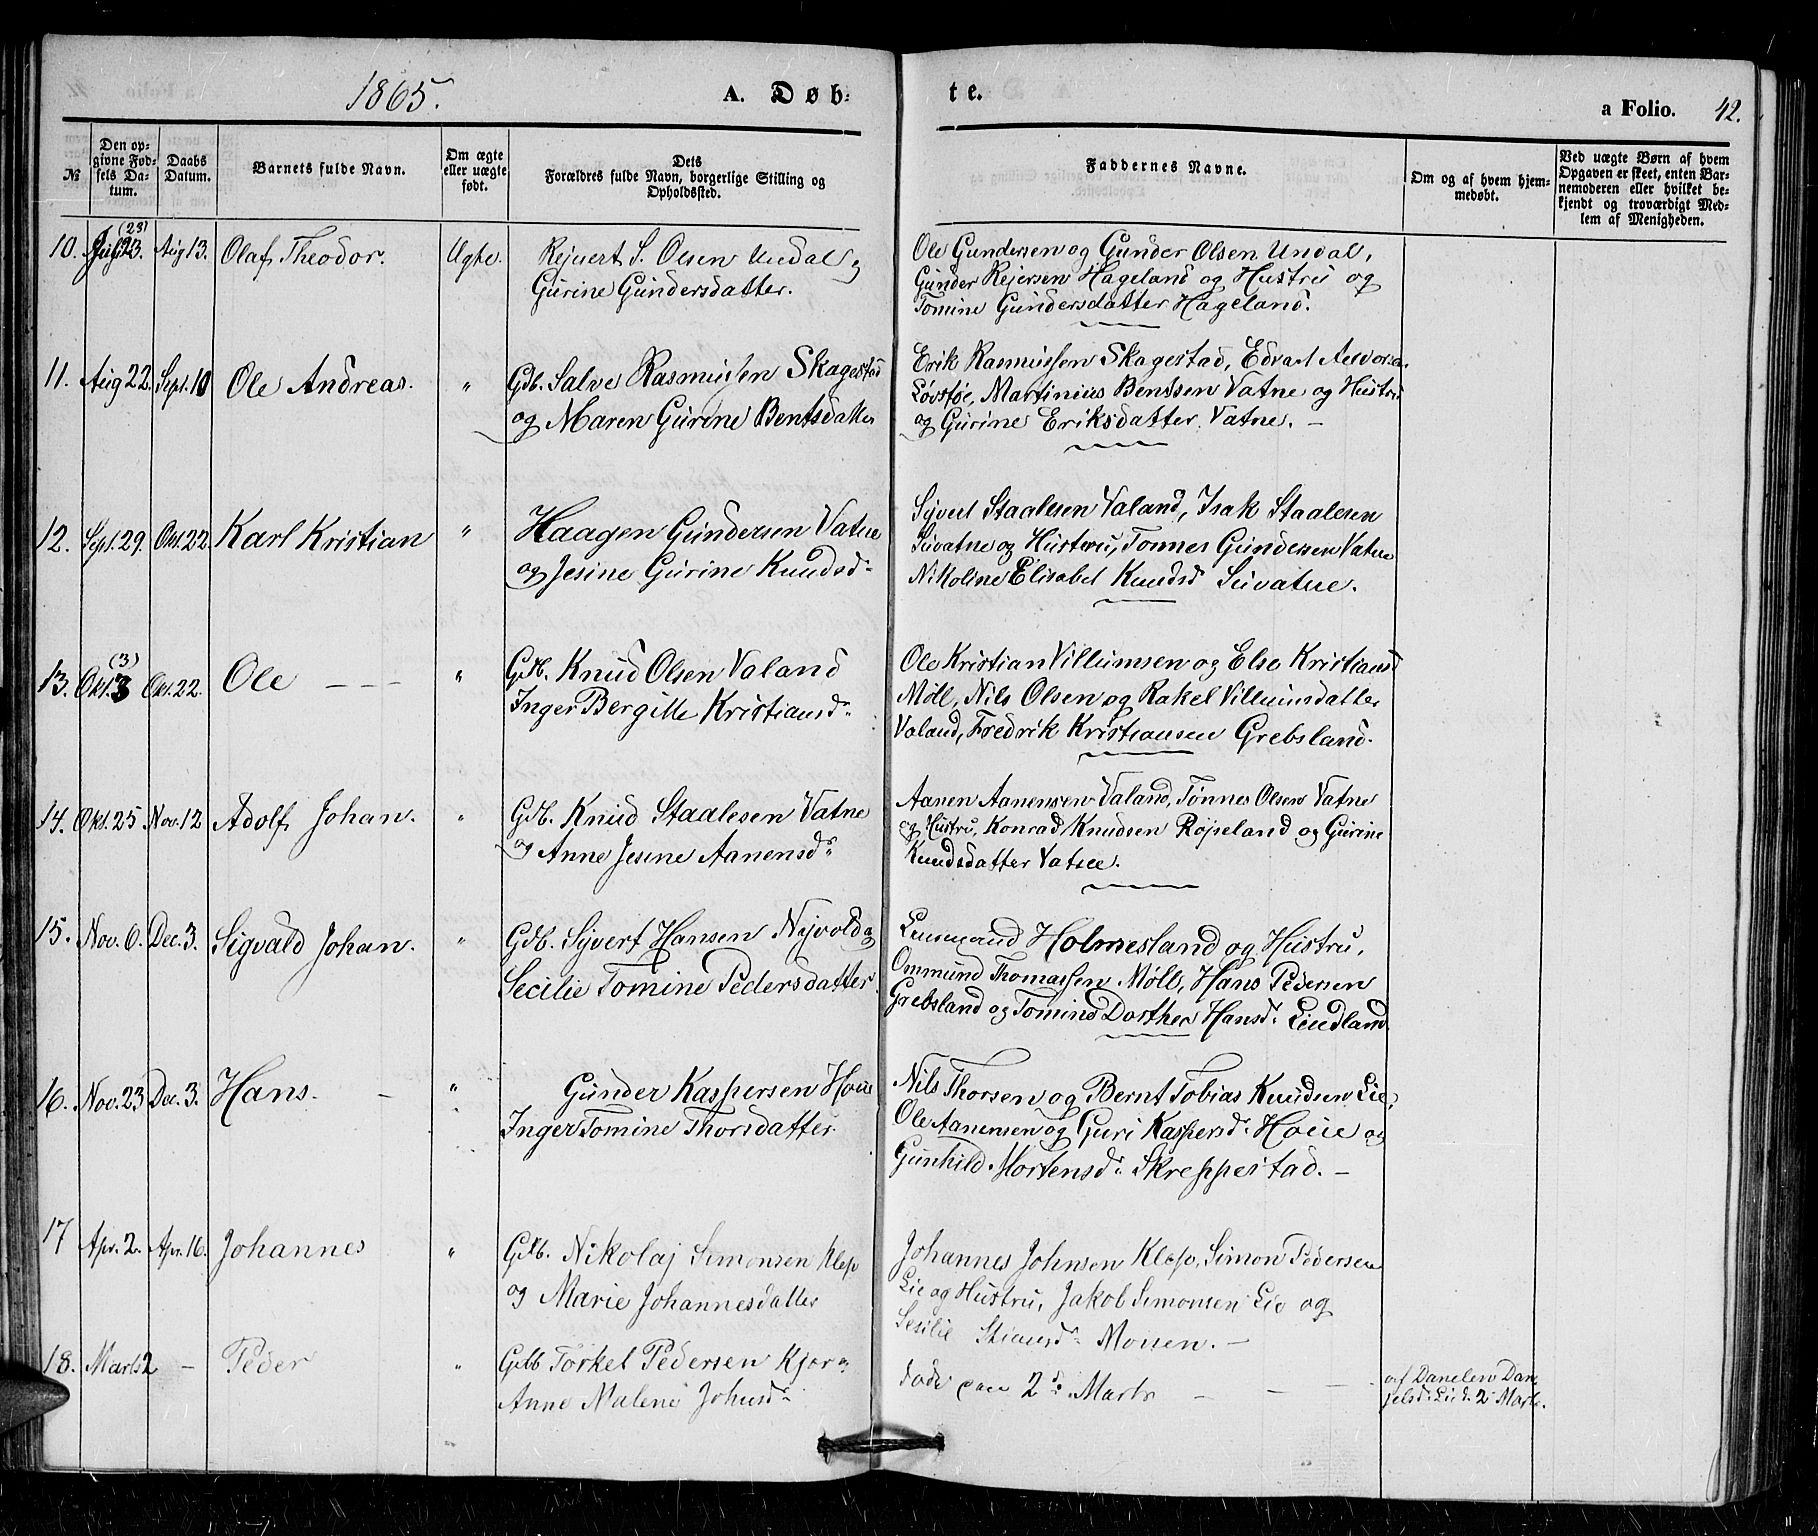 1865.
A. Døb-
te.
a Folio. 42.
№
Den op-
givne Fød-
sels Da-
tum.
Daabs
Datum.
Barnets fulde Navn.
Om ægte
eller uægte
født.
Dets
Forældres fulde Navn, borgerlige Stilling og
Opholdssted.
Faddernes Navne.
Om og af hvem hjem-
medøbt.
Ved uægte Børn af hvem
Opgaven er skeet, enten Bar-
nemoderen eller hvilket be-
kjendt og troværdigt Med-
lem af Menigheden.
10. (23) 23. Aug 13. Olaf Theodor. Ægte. Rejnert S. Olsen Undal og
Gurine Gundersdatter.
Ole Gundersen og Gunder Olsen Undal,
Gunder Rejersen Hageland og Hustru og
Tomine Gundersdatter Hageland.
11. Aug 22. Sept. 10 Ole Andreas. " Gdb. Salve Rasmussen Skagestad
og Maren Gurine Bentsdatter
Erik Rasmussen Skagestad, Edvart
Løvstøe, Martinius Bentsen Vatne og Hustru
og Gurine Eriksdatter Vatne. —
12. Sept. 29. Okt. 22 Karl Kristian " Haagen Gundersen Vatne
og Jesine Gurine Knudsd.
Syvert Staalesen Valand, Isak Staalesen
Suvatne og Hustru, Tønnes Gundersen Vatne
Nikoline Elisabet Knudsd Suvatne.
13. Okt. 3 (3) Okt. 22. Ole — — — " Gdb. Knud Olsen Valand
Inger Bergitte Kristiansd.
Ole Kristian Villumsen og Else Kristiansd
Møll, Nils Olsen og Rakel Villumsdatter
Valand, Fredrik Kristiansen Grebsland.
14. Okt. 25 Nov. 12 Adolf Johan. " Gdb. Knud Staalesen Vatne
og Anne Jesine Aanensd.
Aanen Aanensen Valand, Tønnes Olsen Vatne
og Hustru, Konrad Knudsen Røjseland og Gurine
Knudsdatter Vatne.
15. Nov. 6. Dec. 3. Sigvald Johan. " Gdb. Syvert Hansen Nyvold og
Secilie Tomine Pedersdatter
Lensmand Holmesland og Hustru,
Ommund Thomassen Møll, Hans Pedersen
Grebsland og Tomine Dorthea Hansd. Lindland
16. Nov. 23 Dec. 3. Hans. — " Gunder Kaspersen Houe
Inger Tomine Thorsdatter
Nils Thorsen og Bernt Tobias Knudsen Lie,
Ole Aanensen og Guri Kaspersd. Houe og
Gunhild Mortensd. Skreppestad. —
17 Apr. 2. Apr. 16. Johannes " Gdb. Nikolaj Simonsen Klep
og Marie Johannesdatter
Johannes Johnsen Klep, Simon Pedersen
Lie og Hustru, Jakob Simonsen Lie og
Sesilie Moüen. —
18. Marts 2 — Peder " Gdb Torkel Pedersen Kjær og
Anne Malene Johnsd.
døde den 2d. Marts — — —
af Danelen Dan
jelsd. Lie d. 2 Marts.